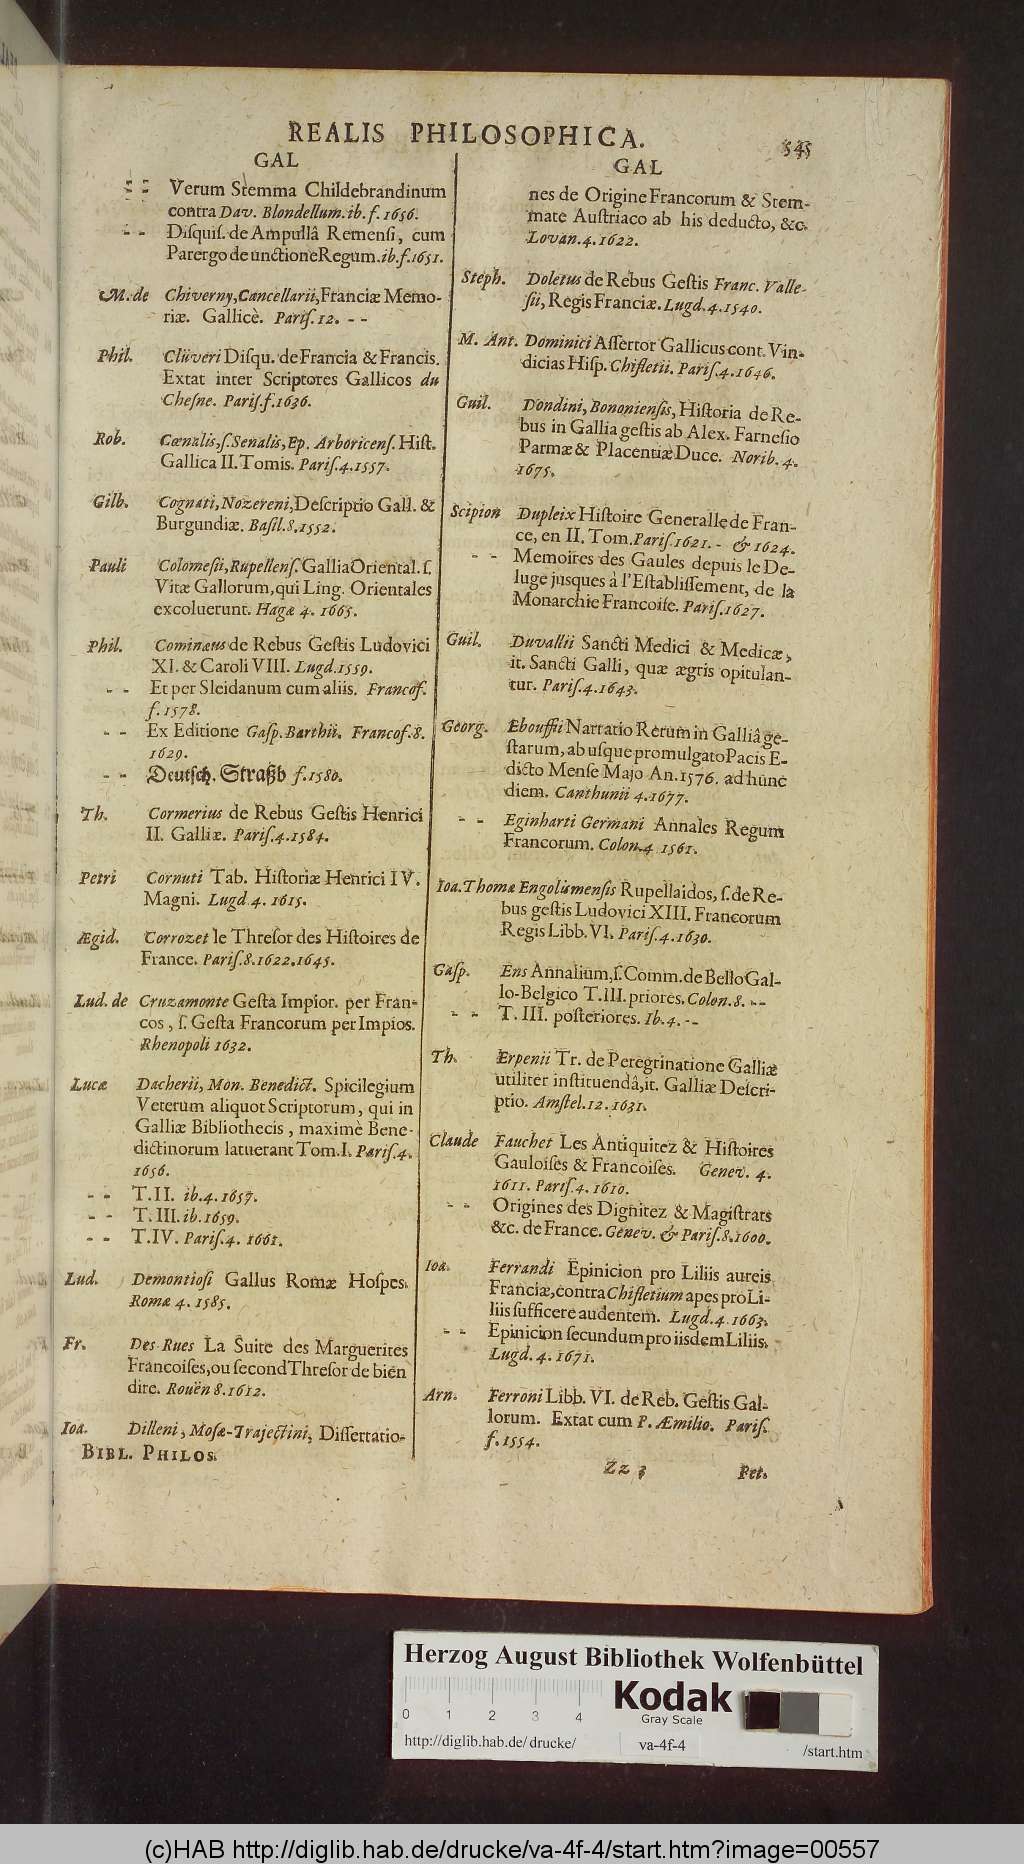 REALIS PHILOSOPHICA.
545
GAL
- - Verum Stemma Childebrandinum
contra Dav. Blondellum. ib. f. 1656.
- - Disquiſ. de Ampullâ Remenſi, cum
Parergo de unctione Regum. ib. f. 1651.
M. de Chiverny, Cancellarii, Franciæ Memo-
riæ. Gallicè. Pariſ. 12. - -
Phil. Clüveri Diſqu. de Francia & Francis.
Extat inter Scriptores Gallicos du
Cheſne. Pariſ. f. 1636.
Rob. Cœnalis, ſ. Senalis, Ep. Arboricenſ. Hiſt.
Gallica II. Tomis. Pariſ. 4. 1557.
Gilb. Cognati, Nozereni, Deſcriptio Gall. &
Burgundiæ. Baſil. 8. 1552.
Pauli Colomeſii, Rupellenſ. Gallia Oriental. ſ.
Vitæ Gallorum, qui Ling. Orientales
excoluerunt. Hagæ 4. 1665.
Phil. Cominæus de Rebus Geſtis Ludovici
XI. & Caroli VIII. Lugd. 1559.
- - Et per Sleidanum cum aliis. Francof.
f. 1578.
- - Ex Editione Gaſp. Barthii. Francof. 8.
1629.
- - Deutſch. Straßb f. 1580.
Th. Cormerius de Rebus Geſtis Henrici
II. Galliæ. Pariſ. 4. 1584.
Petri Cornuti Tab. Hiſtoriæ Henrici IV.
Magni. Lugd 4. 1615.
Ægid. Corrozet le Threſor des Hiſtoires de
France. Pariſ. 8. 1622. 1645.
Lud. de Cruzamonte Geſta Impior. per Fran-
cos, ſ. Geſta Francorum per Impios.
Rhenopoli 1632.
Lucæ Dacherii, Mon. Benedict. Spicilegium
Veterum aliquot Scriptorum, qui in
Galliæ Bibliothecis, maximè Bene-
dictinorum latuerant Tom. I. Pariſ. 4.
1656.
- - T. II. ib. 4. 1657.
- - T. III. ib. 1659.
- - T. IV. Pariſ. 4. 1661.
Lud. Demontioſi Gallus Romæ Hoſpes.
Romæ 4. 1585.
Fr. Des Rues La Suite des Marguerites
Francoiſes, ou ſecond Threſor de bien
dire. Rouën 8. 1612.
Ioa. Dilleni, Moſæ-Trajectini, Diſſertatio-
BIBL. PHILOS.
GAL
nes de Origine Francorum & Stem-
mate Auſtriaco ab his deducto, &c.
Lovan. 4. 1622.
Steph. Doletus de Rebus Geſtis Franc. Valle-
ſii, Regis Franciæ. Lugd. 4. 1540.
M. Ant. Dominici Aſſertor Gallicus cont. Vin-
dicias Hiſp. Chifletii. Pariſ. 4. 1646.
Guil. Dondini, Bononienſis, Hiſtoria de Re-
bus in Gallia geſtis ab Alex. Farneſio
Parmæ & Placentiæ Duce. Norib. 4.
1675.
Scipion Dupleix Hiſtoire Generalle de Fran-
ce, en II. Tom. Pariſ. 1621. - & 1624.
- - Memoires des Gaules depuis le De-
luge juſques à l'Eſtabliſſement, de la
Monarchie Francoiſe. Pariſ. 1627.
Guil. Duvallii Sancti Medici & Medicæ,
it. Sancti Galli, quæ ægris opitulan-
tur. Pariſ. 4. 1643.
Georg. Ebouffii Narratio Rerum in Galliâ ge-
ſtarum, ab uſque promulgato Pacis E-
dicto Menſe Majo An. 1576. ad hunc
diem. Canthunii 4. 1677.
- - Eginharti Germani Annales Regum
Francorum. Colon. 4 1561.
Ioa. Thomæ Engolismenſis Rupellaidos, ſ. de Re-
bus geſtis Ludovici XIII. Francorum
Regis Libb. VI. Pariſ. 4. 1630.
Gaſp. Ens Annalium, ſ. Comm. de Bello Gal-
lo-Belgico T. III. priores. Colon. 8. - -
- - T. III. poſteriores. Ib. 4. - -
Th. Erpenii Tr. de Peregrinatione Galliæ
utiliter inſtituendâ, it. Galliæ Deſcri-
ptio. Amſtel. 12. 1631.
Claude Fauchet Les Antiquitez & Hiſtoires
Gauloiſes & Francoiſes. Genev. 4.
1611. Pariſ. 4. 1610.
- - Origines des Dignitez & Magiſtrats
&c. de France. Genev. & Pariſ. 8. 1600.
Ioa. Ferrandi Epinicion pro Liliis aureis
Franciæ, contra Chifletium apes pro Li-
liis ſufficere audentem. Lugd. 4. 1663.
- - Epinicion ſecundum pro iisdem Liliis.
Lugd. 4. 1671.
Arn. Ferroni Libb. VI. de Reb. Geſtis Gal-
lorum. Extat cum P. Æmilio. Pariſ.
f. 1554.
Zz 3 Pet.
Herzog August Bibliothek Wolfenbüttel
0 1 2 3 4
Kodak
Gray Scale
http://diglib.hab.de/drucke/ va-4f-4 /start.htm
(c)HAB http://diglib.hab.de/drucke/va-4f-4/start.htm?image=00557